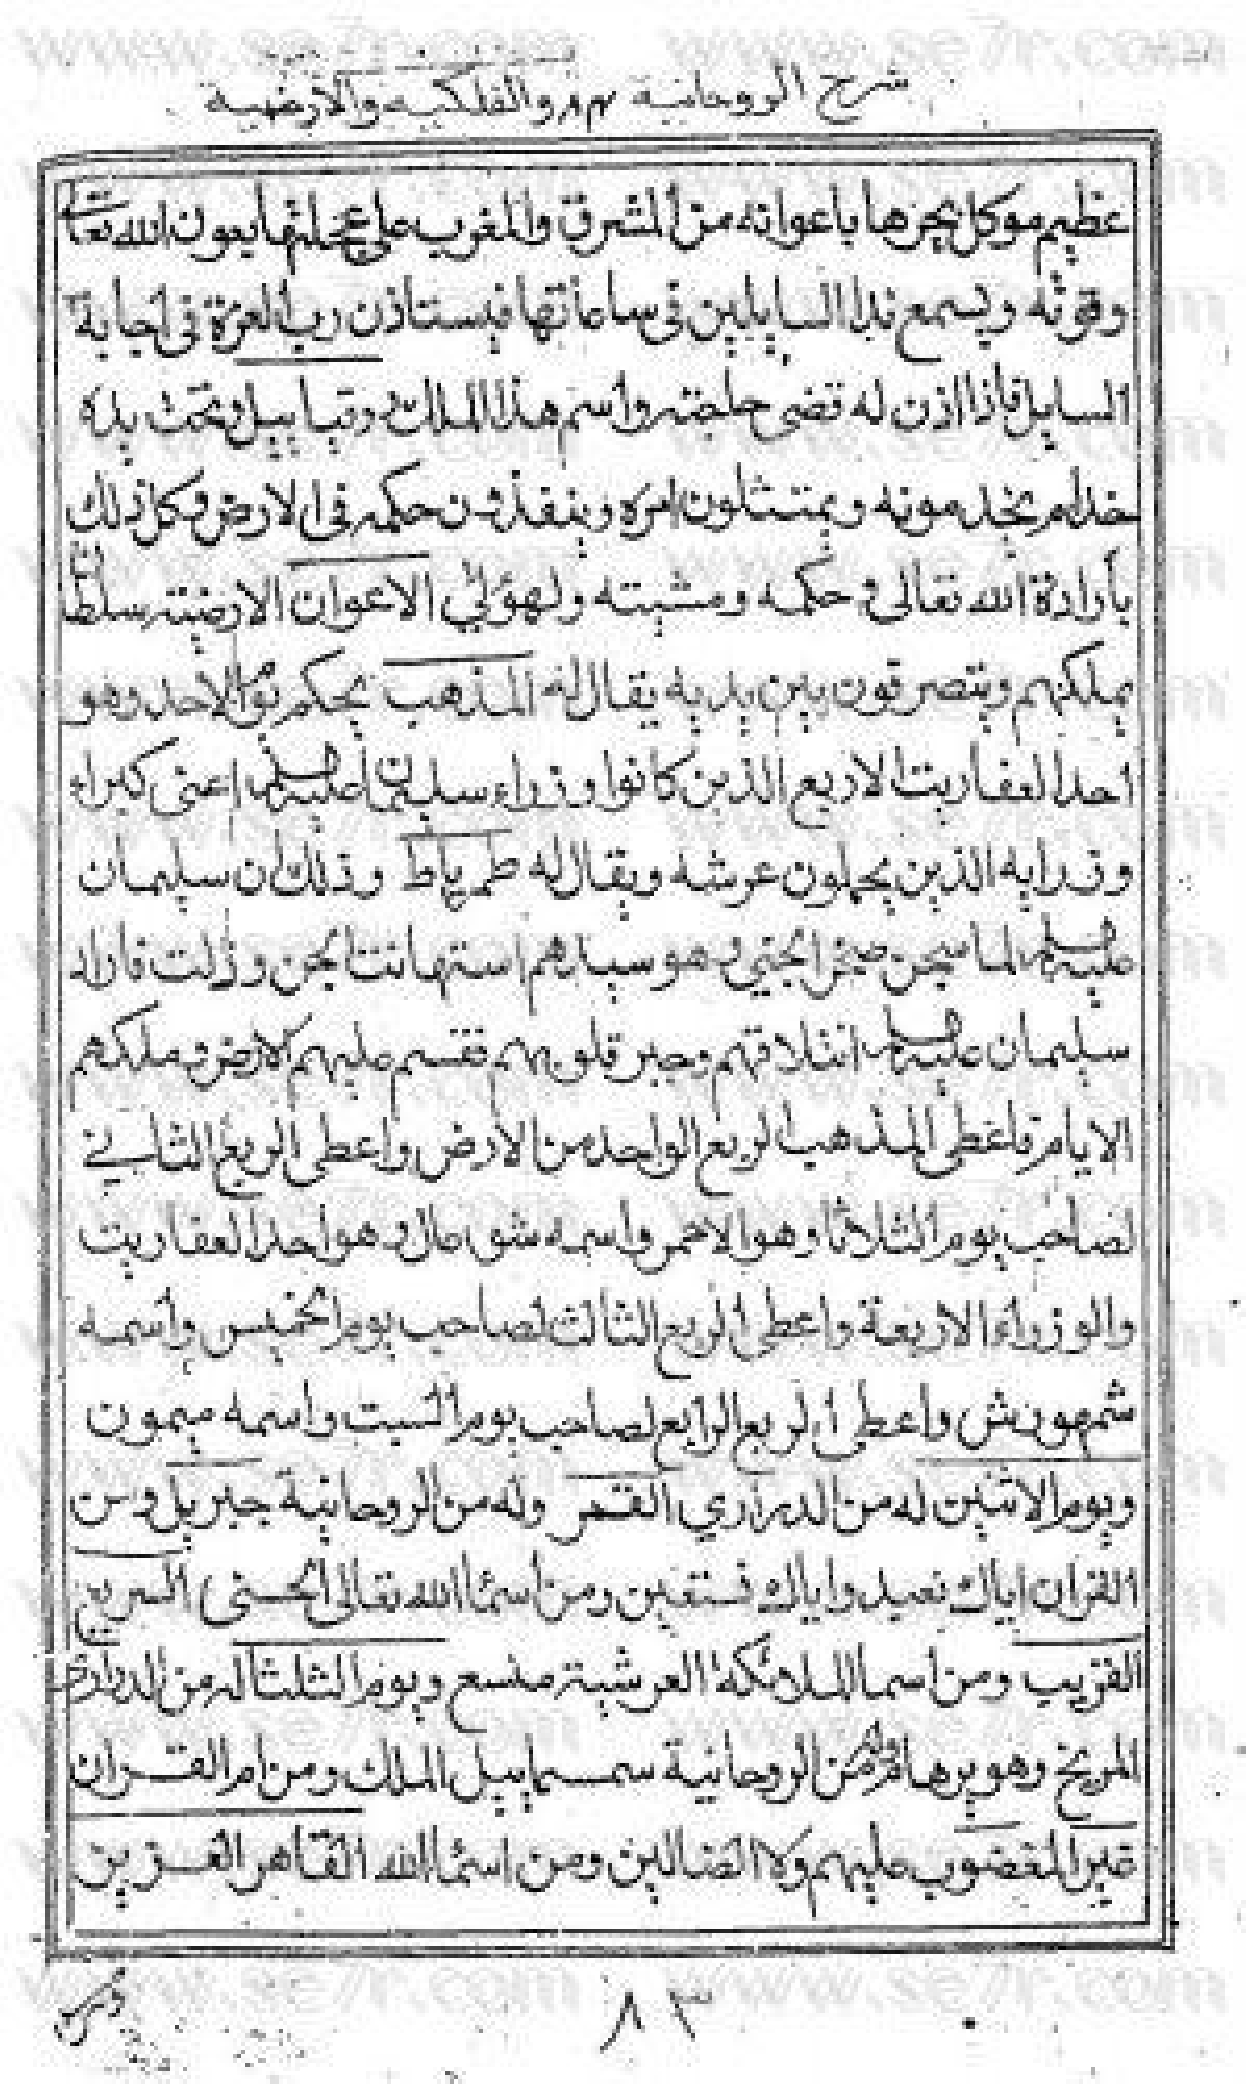 www.se7r.com www.se7r.com
شرح الروحانية والفلكيه والارضية
عظيم موكل يجرها باعوانه من المشرق والمغرب علي عجلتها بعون الله تعا
وقوته ويسمع ندا السايلين في ساعاتها فيستاذن رب العزة في اجابة
السايل فاذا اذن له قضى حاجته واسم هذا الملك روقياييل وتحت يده
خدام يخدمونه ويمتثلون امره وينفذون حكمه في الارض وكل ذلك
بارادة الله تعالى وحكمه ومشيته ولهولاي الاعوان الارضيته سلطان
يملكهم ويتصرفون بين يديه يقال له المذهب يحكم يوم الاحد وهو
احد العفاريت الاربع الذين كانوا وزراء سليمان عليه السلام اعنى كبراء
وزرايه الذين يحملون عرشه ويقال له طرباط وذلك ان سليمان
عليه السلام لما سجن صخر الجني وهو سيدهم استهانت الجن وذلت فاراد
سليمان عليه السلام ائتلافهم وجبر قلوبهم فقسم عليهم الارض وملكهم
الايام فاعطى المذهب الربع الواحد من الارض واعطى الربع الثاني
لصاحب يوم الثلاثا وهو الاحمر واسمه شوغال وهو احد العفاريت
والوزراء الاربعة واعطى الربع الثالث لصاحب يوم الخميس واسمه
شمهورش واعطى الربع الرابع لصاحب يوم السبت واسمه ميمون
ويوم الاثنين له من الدراري القمر وله من الروحانية جبريل ومن
القران اياك نعبد واياك نستعين ومن اسما الله تعالى الحسنى السريع
القريب ومن اسما الملائكه العرشية منسع ويوم الثلثا له من الدراري
المريخ وهو بهرام وله من الروحانية سمسماييل الملك ومن ام القران
غير المغضوب عليهم ولا الضالين ومن اسما الله القاهر العزيز
٨٣